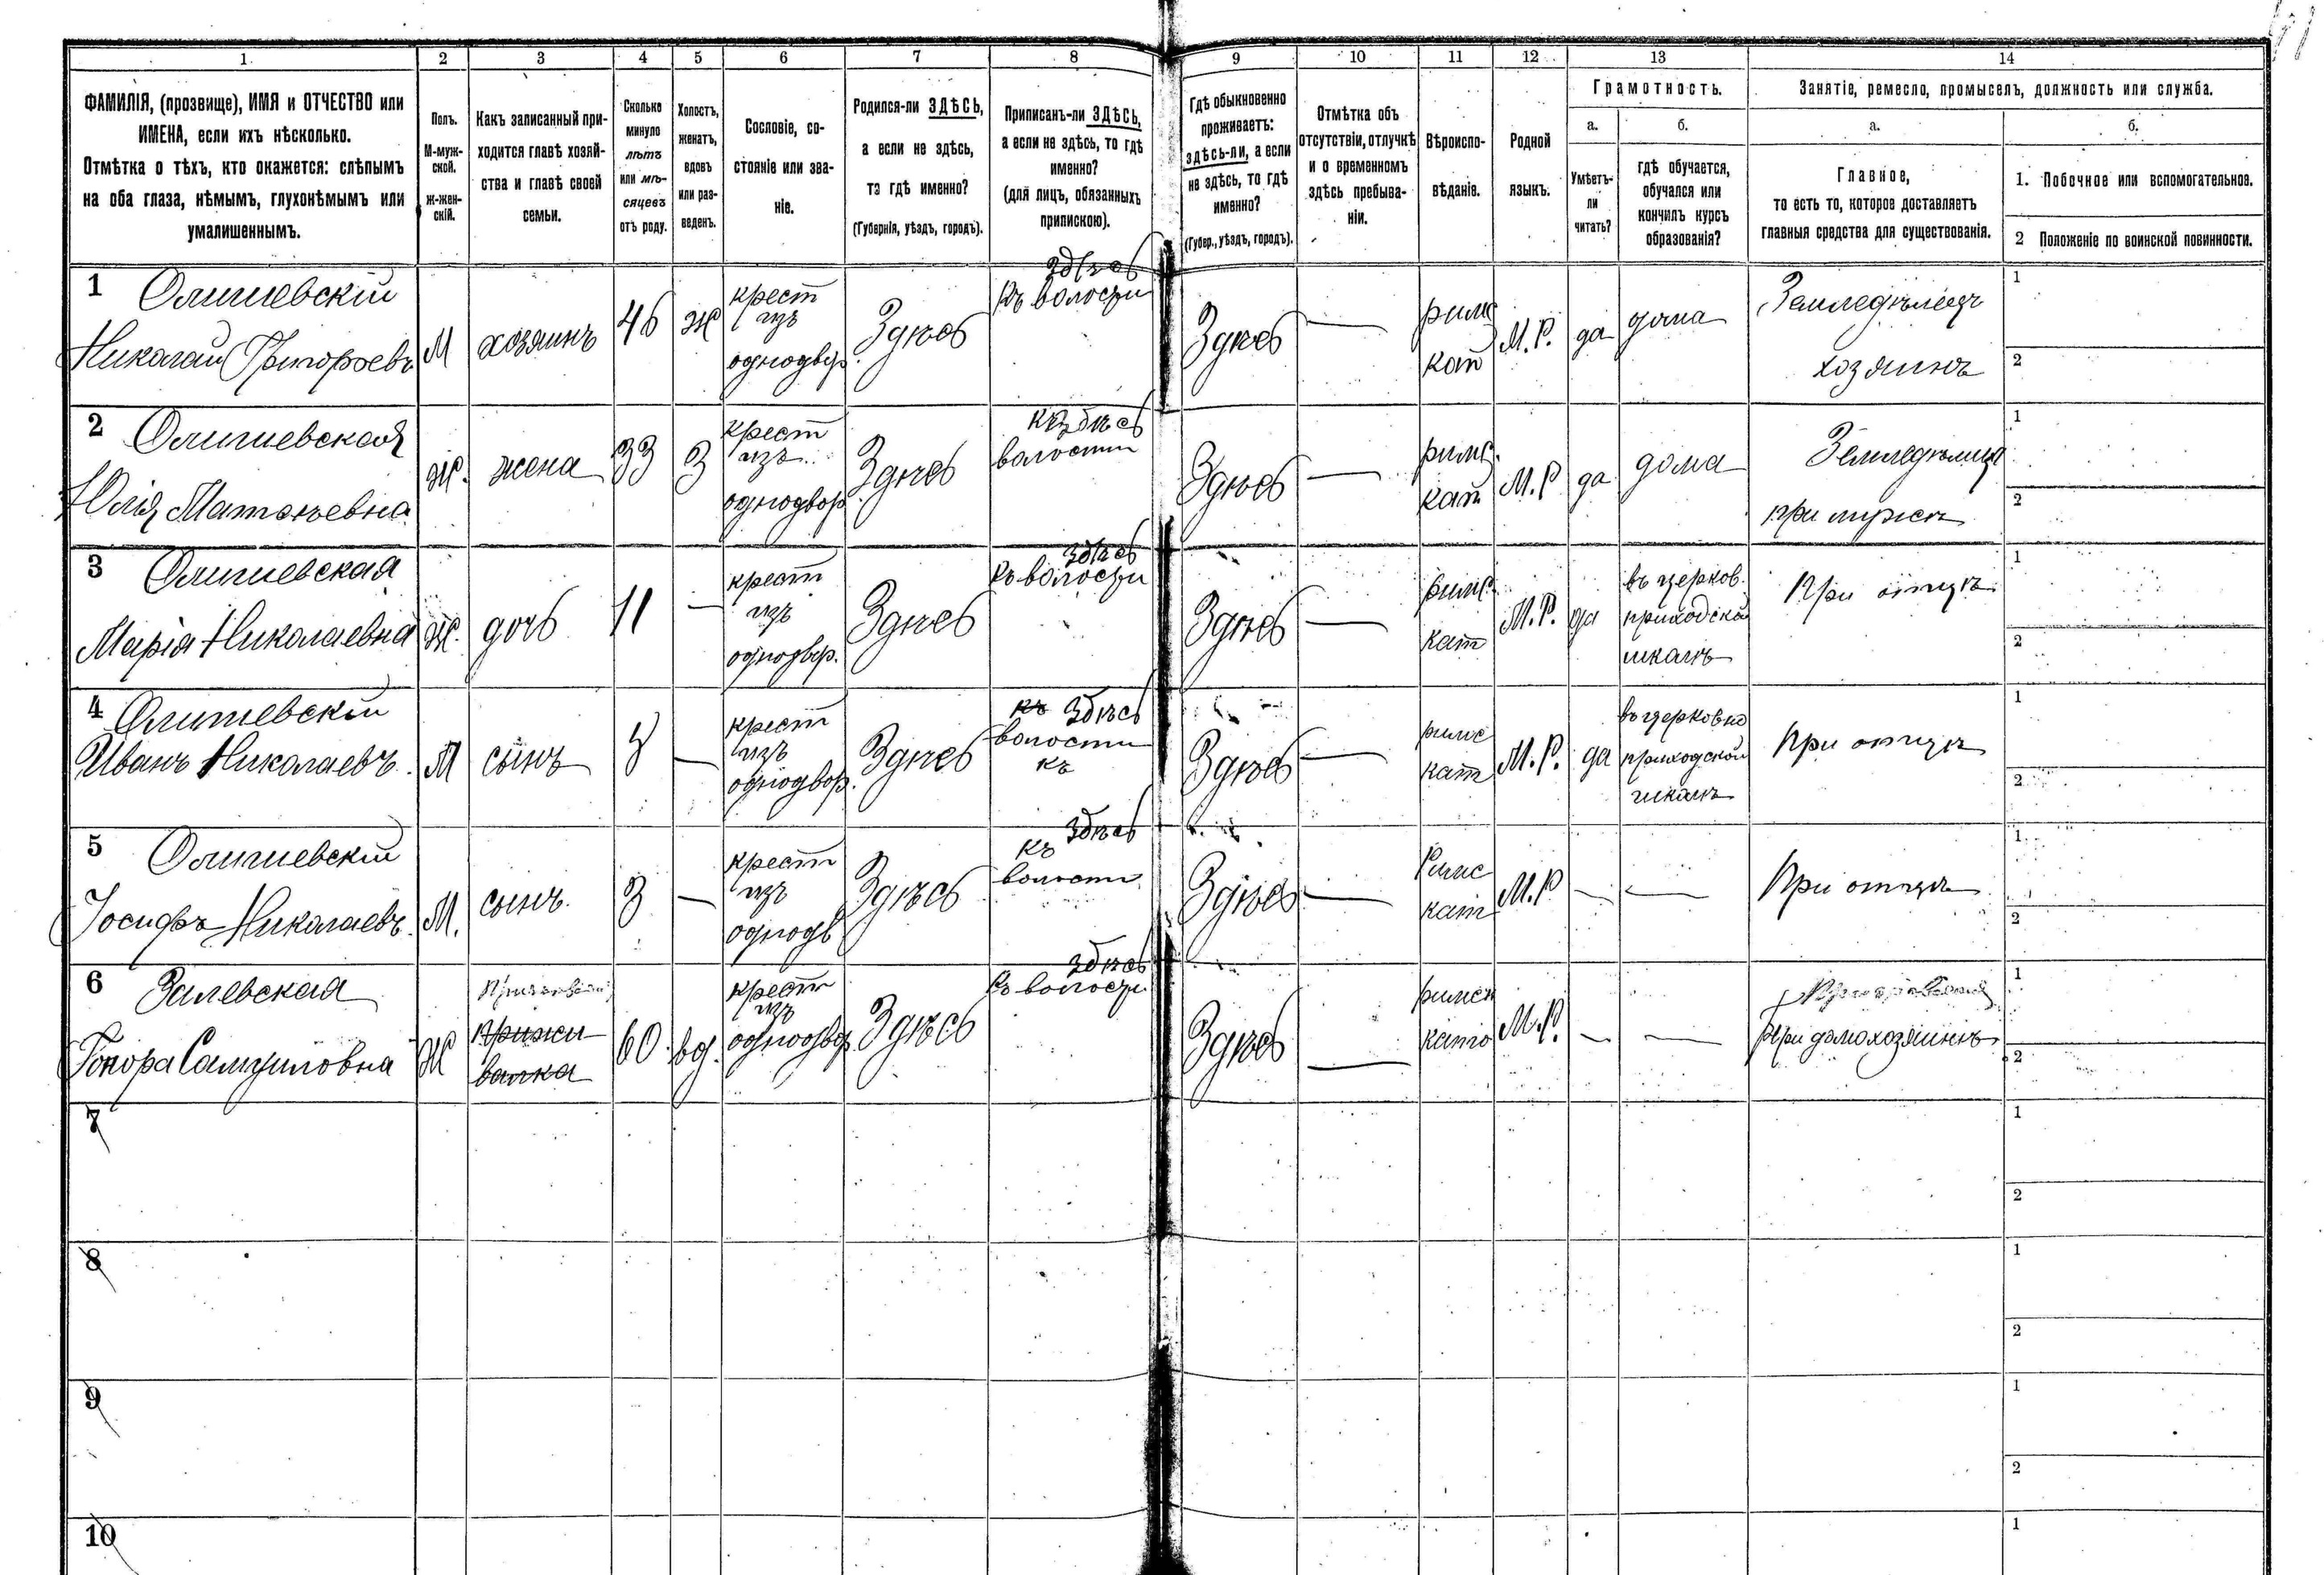 1 2 3 4 5 6 7 8 9 10 11 12 13 14
ФАМИЛІЯ, (прозвище), ИМЯ и ОТЧЕСТВО или
ИМЕНА, если ихъ нѣсколько.
Отмѣтка о тѣхъ, кто окажется: слѣпымъ
на оба глаза, нѣмымъ, глухонѣмымъ или
умалишеннымъ.
Полъ.
М-муж-
ской.
ж-жен-
скій.
Какъ записанный при-
ходится главѣ хозяй-
ства и главѣ своей
семьи.
Сколько
минуло
лѣтъ
или мѣ-
сяцевъ
отъ роду.
Холостъ,
женатъ,
вдовъ
или раз-
веденъ.
Сословіе, со-
стояніе или зва-
ніе.
Родился-ли ЗДѢСЬ,
а если не здѣсь,
то гдѣ именно?
(Губернія, уѣздъ, городъ).
Приписанъ-ли ЗДѢСЬ,
а если не здѣсь, то гдѣ
именно?
(для лицъ, обязанныхъ
припискою).
Гдѣ обыкновенно
проживаетъ:
здѣсь-ли, а если
не здѣсь, то гдѣ
именно?
(Губер., уѣздъ, городъ).
Отмѣтка объ
отсутствіи, отлучкѣ
и о временномъ
здѣсь пребыва-
ніи.
Вѣроиспо-
вѣданіе.
Родной
языкъ.
Грамотность.
а.
Умѣетъ-
ли
читать?
б.
гдѣ обучается,
обучался или
кончилъ курсъ
образованія?
Занятіе, ремесло, промыселъ, должность или служба.
а.
Главное,
то есть то, которое доставляетъ
главныя средства для существованія.
б.
1. Побочное или вспомогательное.
2 Положеніе по воинской повинности.
1
Николай Григорьевъ
М
хозяинъ
46
ж
крест
изъ
однодвор.
Здѣсь
здѣсь
къ волости
Здѣсь
—
римс
кат
М. Р.
да
дома
Земледѣлецъ
хозяинъ
1
2
2
Юлія Матвѣевна
Ж.
жена
33
З
крест
изъ
однодвор.
Здѣсь
къ здѣсь
волости
Здѣсь
—
римс.
кат
М. Р
да
дома
при мужѣ
1
2
3
Марія Николаевна
Ж.
дочь
11
—
крест
изъ
однодвор.
Здѣсь
здѣсь
къ волости
Здѣсь
—
римс.
кат
М. Р.
да
въ церков.
приходской
школѣ
При отцѣ
1
2
4
Иванъ Николаевъ.
М
сынъ
—
крест
изъ
однодвор.
Здѣсь
къ здѣсь
волости
къ
Здѣсь
—
римс
кат
М. Р.
да
въ церковно
приходской
школѣ
При отцѣ
1
2
5
Іосифъ Николаевъ.
М.
сынъ.
3
—
крест
изъ
однодв
Здѣсь
здѣсь
къ
волости
Здѣсь
—
Римс
кат
М. Р
—
—
При отцѣ
1
2
6 Залевская
Гонора Самуиловна
Ж
прижи
валка
60.
вд.
крест
изъ
однодвор
Здѣсь
здѣсь
къ волости
Здѣсь
—
римск
като
М. Р.
—
—
При домохозяинѣ
1
2
7
1
2
8
1
2
9
1
2
10
1